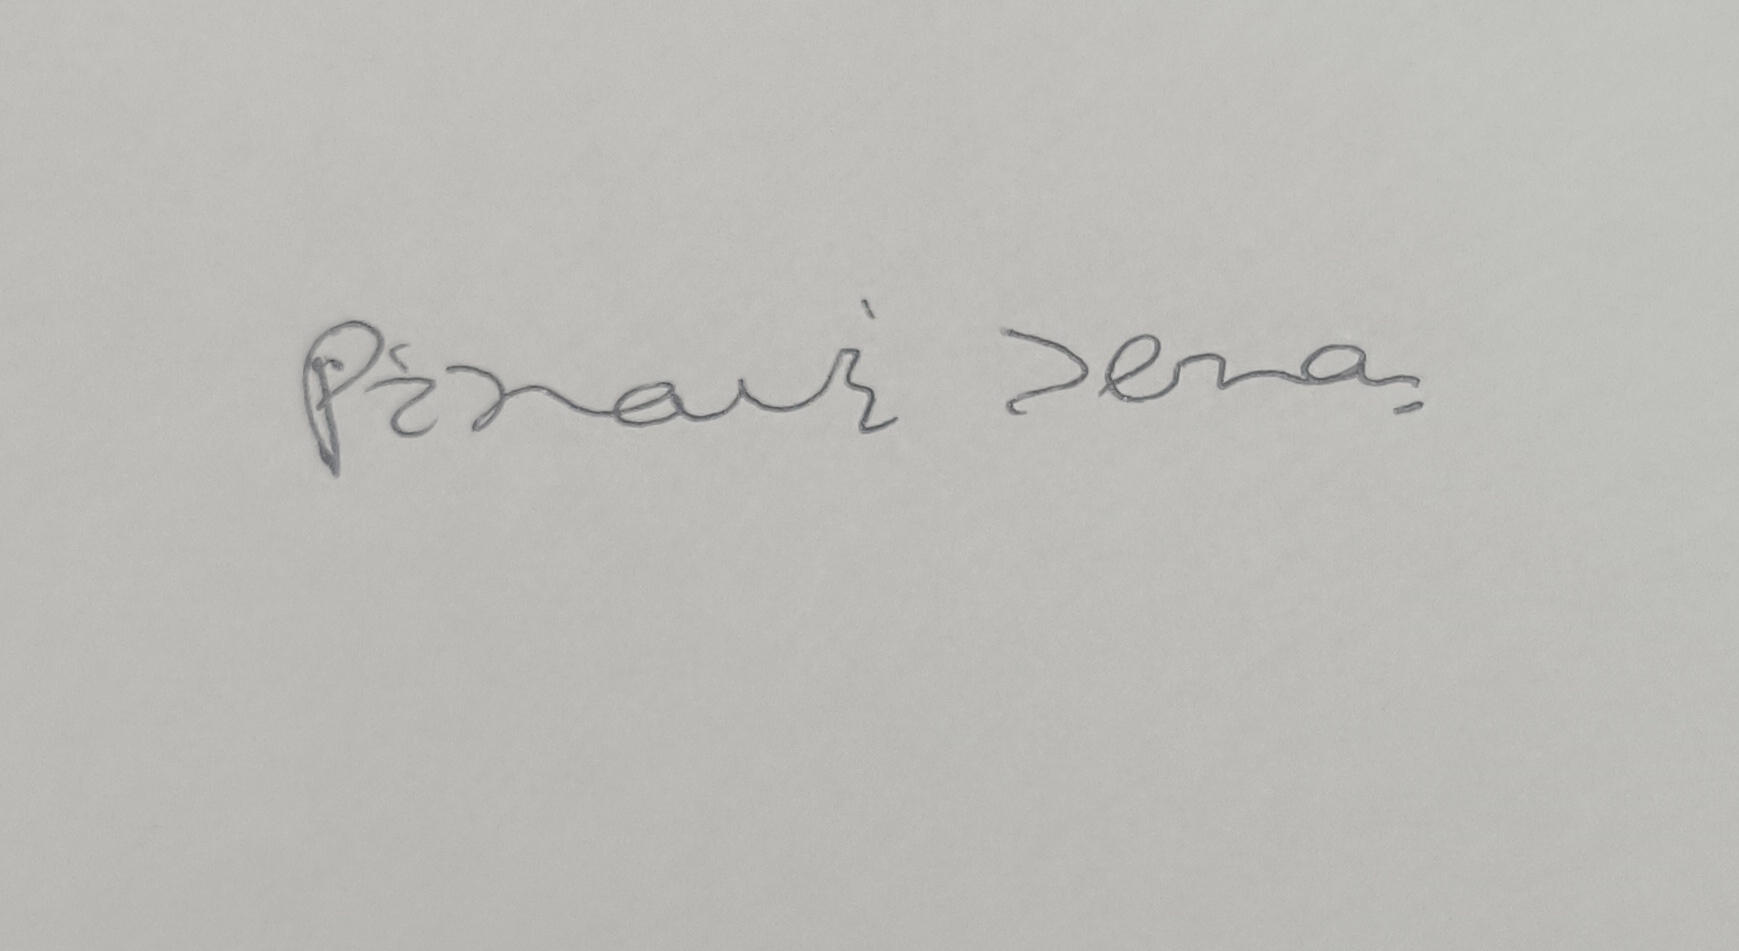 Pinaki Jena